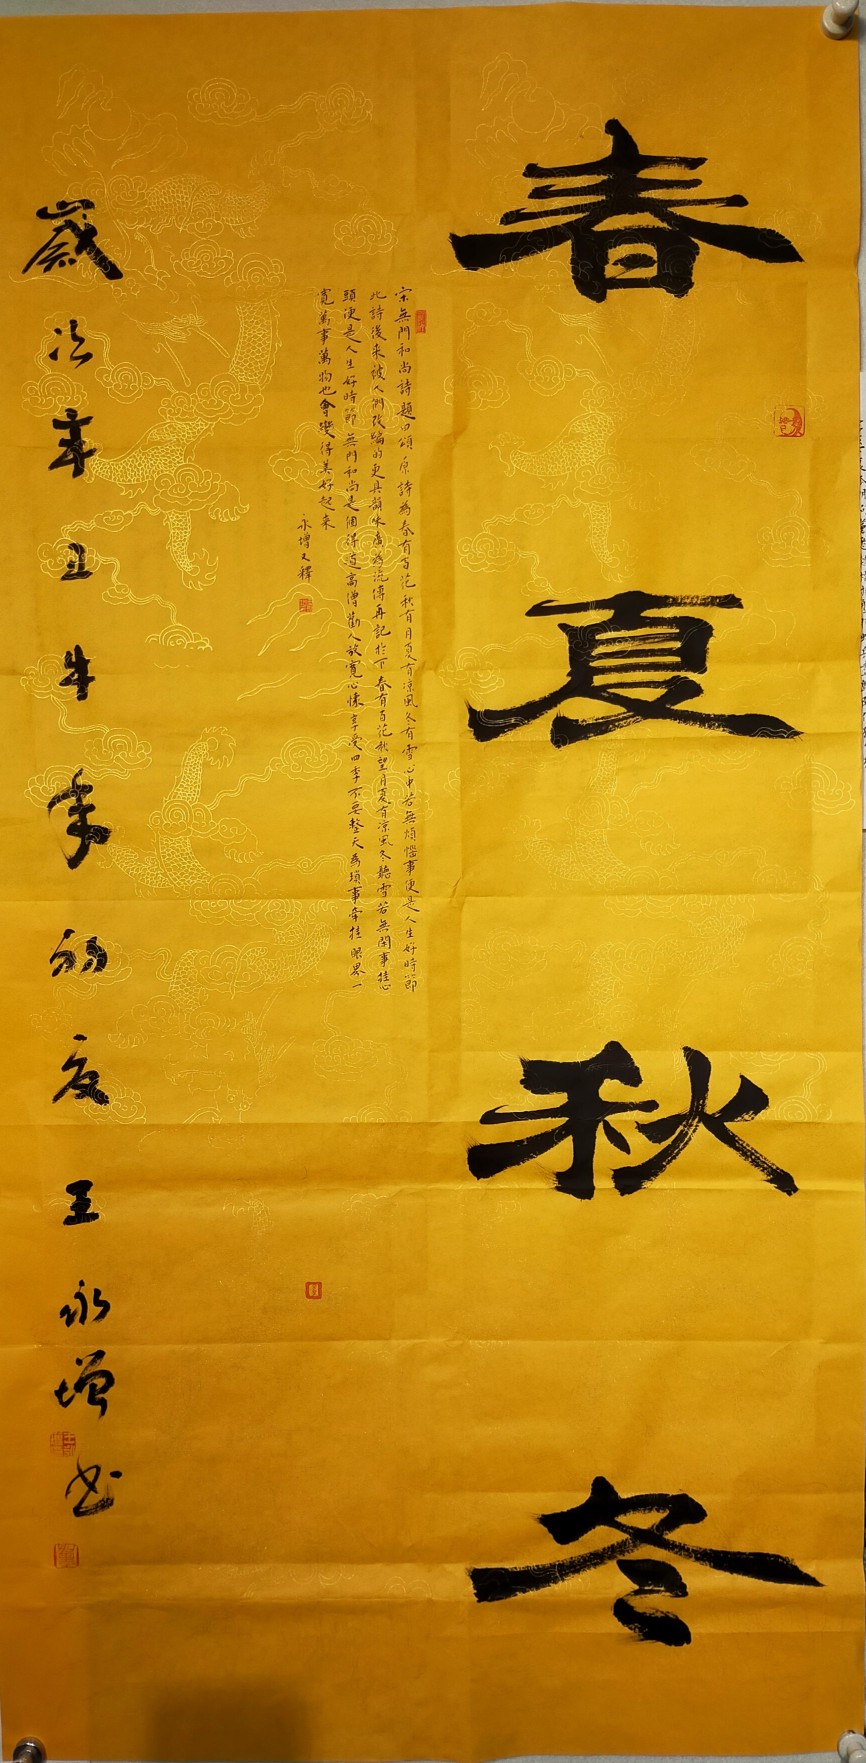 春夏秋冬
宗無門和尚詩題四頌原詩為春有百花秋有月夏有涼風冬有雪心中若無煩惱事便是人生好時節
此詩後来被人們改編的更具韻味廣為流傳再記於下春有百花秋望月夏有涼風冬聽雪若無閑事挂心
頭便是人生好時節無門和尚是個得道高僧勸人放寬心懷享受四季不要整天為瑣事牽挂眼界一
寬萬事萬物也會變得美好起来
永增又釋
歲次辛丑牛年初夏王永增书